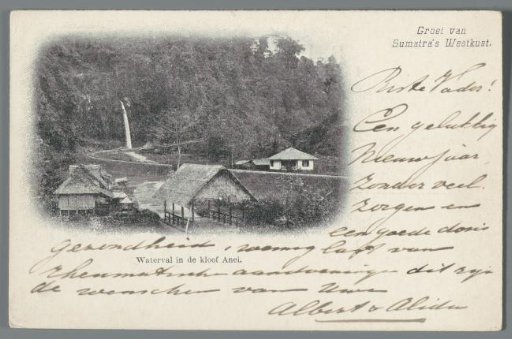 Groet van
Sumatra's Westkust.
Beste Vader!
Een gelukkig
Nieuwjaar
zonder veel
zorgen en
een goede dosis
gezondheid, weinig last van
Rheumatische aandoeningen dit zijn
de wenschen van Uwe
Albert & Alida
Waterval in de kloof Anei.